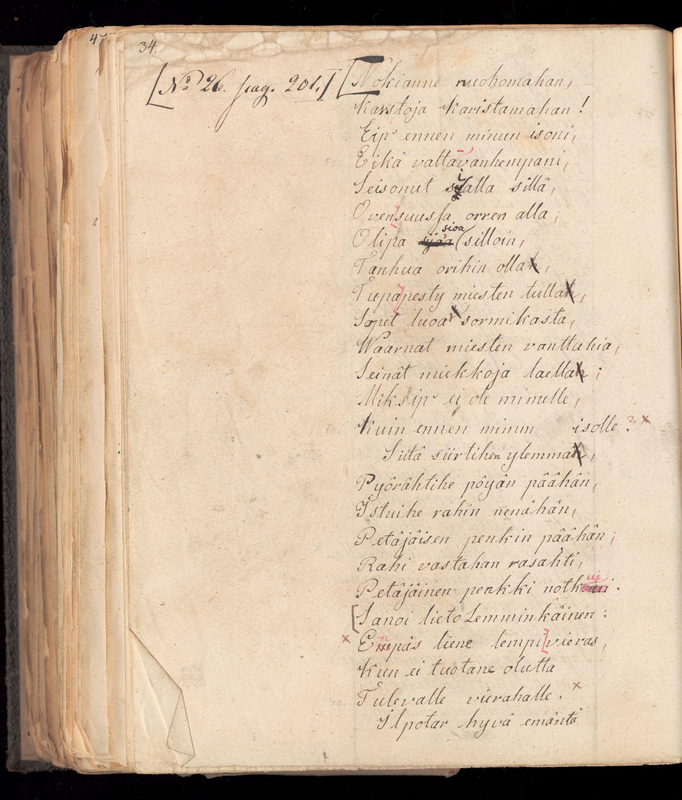 34.
[N:o 26. pag. 201.]
[Nokianne ruohomahan,
Karstoja karistamahan!
Eip' ennen minun isoni,
Eikä valtavanhempani,
Seisonut sialla sillä,
Ovensuussa orren alla;
Olipa sioa silloin,
Tanhua orihin olla,
Tupa pesty miesten tulla,
Sopet luoa sormikasta,
Waarnat miesten vanttahia,
Seinät miekkoja laella;
Miksip' ei ole minulle,
Kuin ennen minun isolle?
Siitä siirtihen ylemmä,
Pyörähtihe pöyän päähän,
Istuihe rahin nenähän,
Petäjäisen penkin päähän;
Rahi vastahan rasahti,
Petäjäinen penkki notkui.
[Sanoi lieto Lemminkäinen:
Empäs liene lempivieras,
Kun ei tuotane olutta
Tulevalle vierahalle.
Ilpotar hyvä emäntä